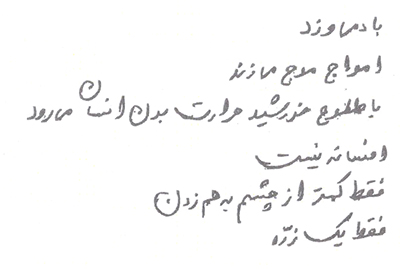 باد می‌وزد
امواج موج می‌زند
با طلوع خورشید حرارت بدن انسان می‌رود
افسانه نیست
فقط کمتر از چشم به هم زدن
فقط یک ذرّه